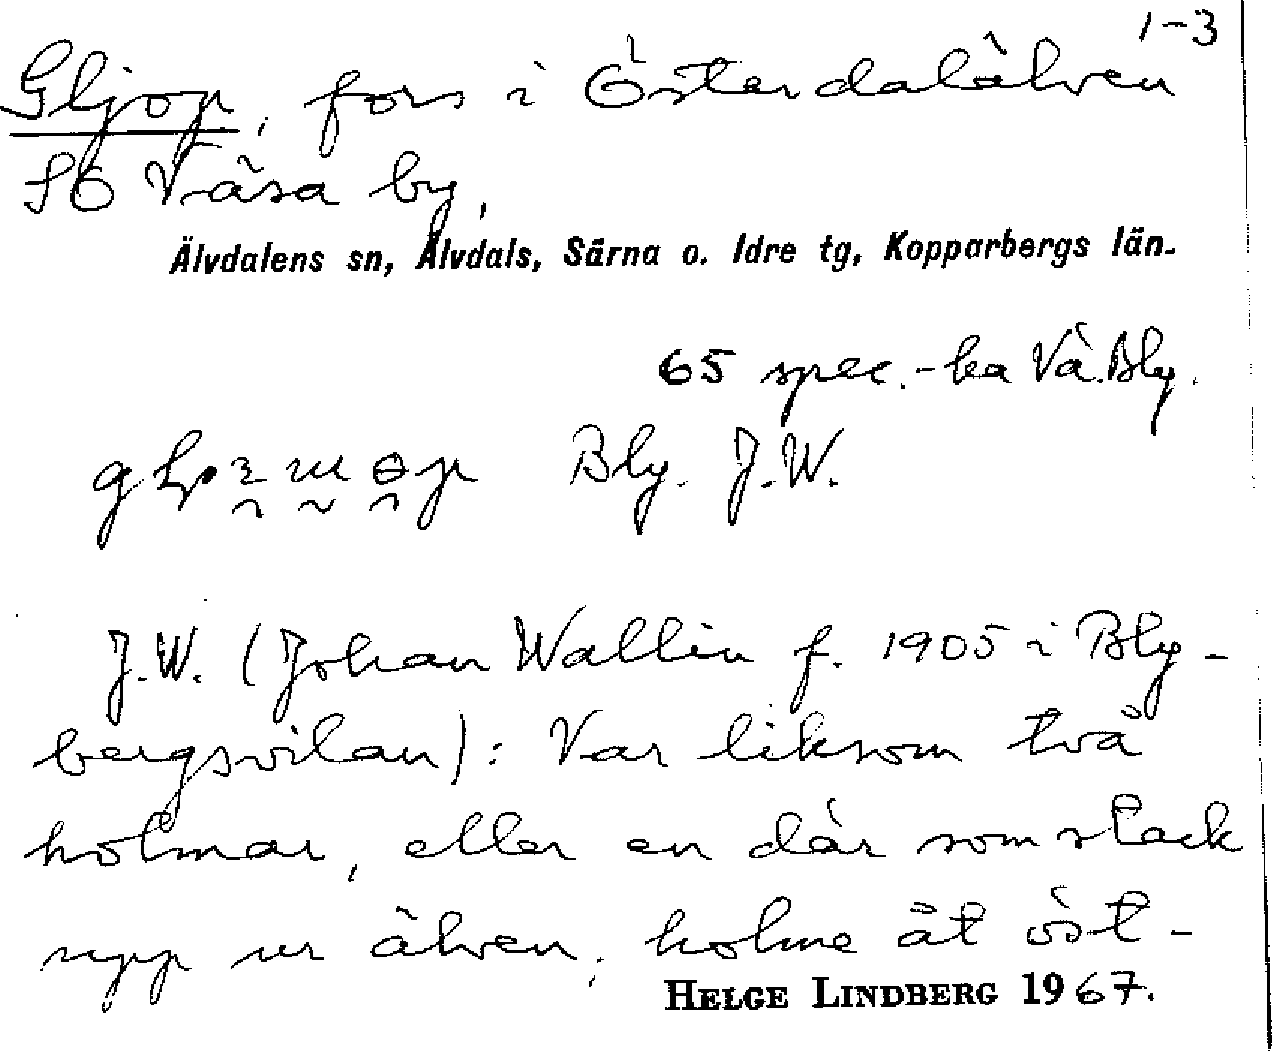 1-3
Gljop, fors i Österdalälven
SO Väsa by,
Älvdalens sn, Älvdals, Särna o. Idre tg, Kopparbergs län.
65 spec.-ka Vä. Bly.
Bly. J.W.
J.W. (Johan Wallin f. 1905 i Bly-
bergsvilan): Var liksom två
holmar, eller en där som stack
upp ur älven, holme åt öst-
HELGE LINDBERG 1967.